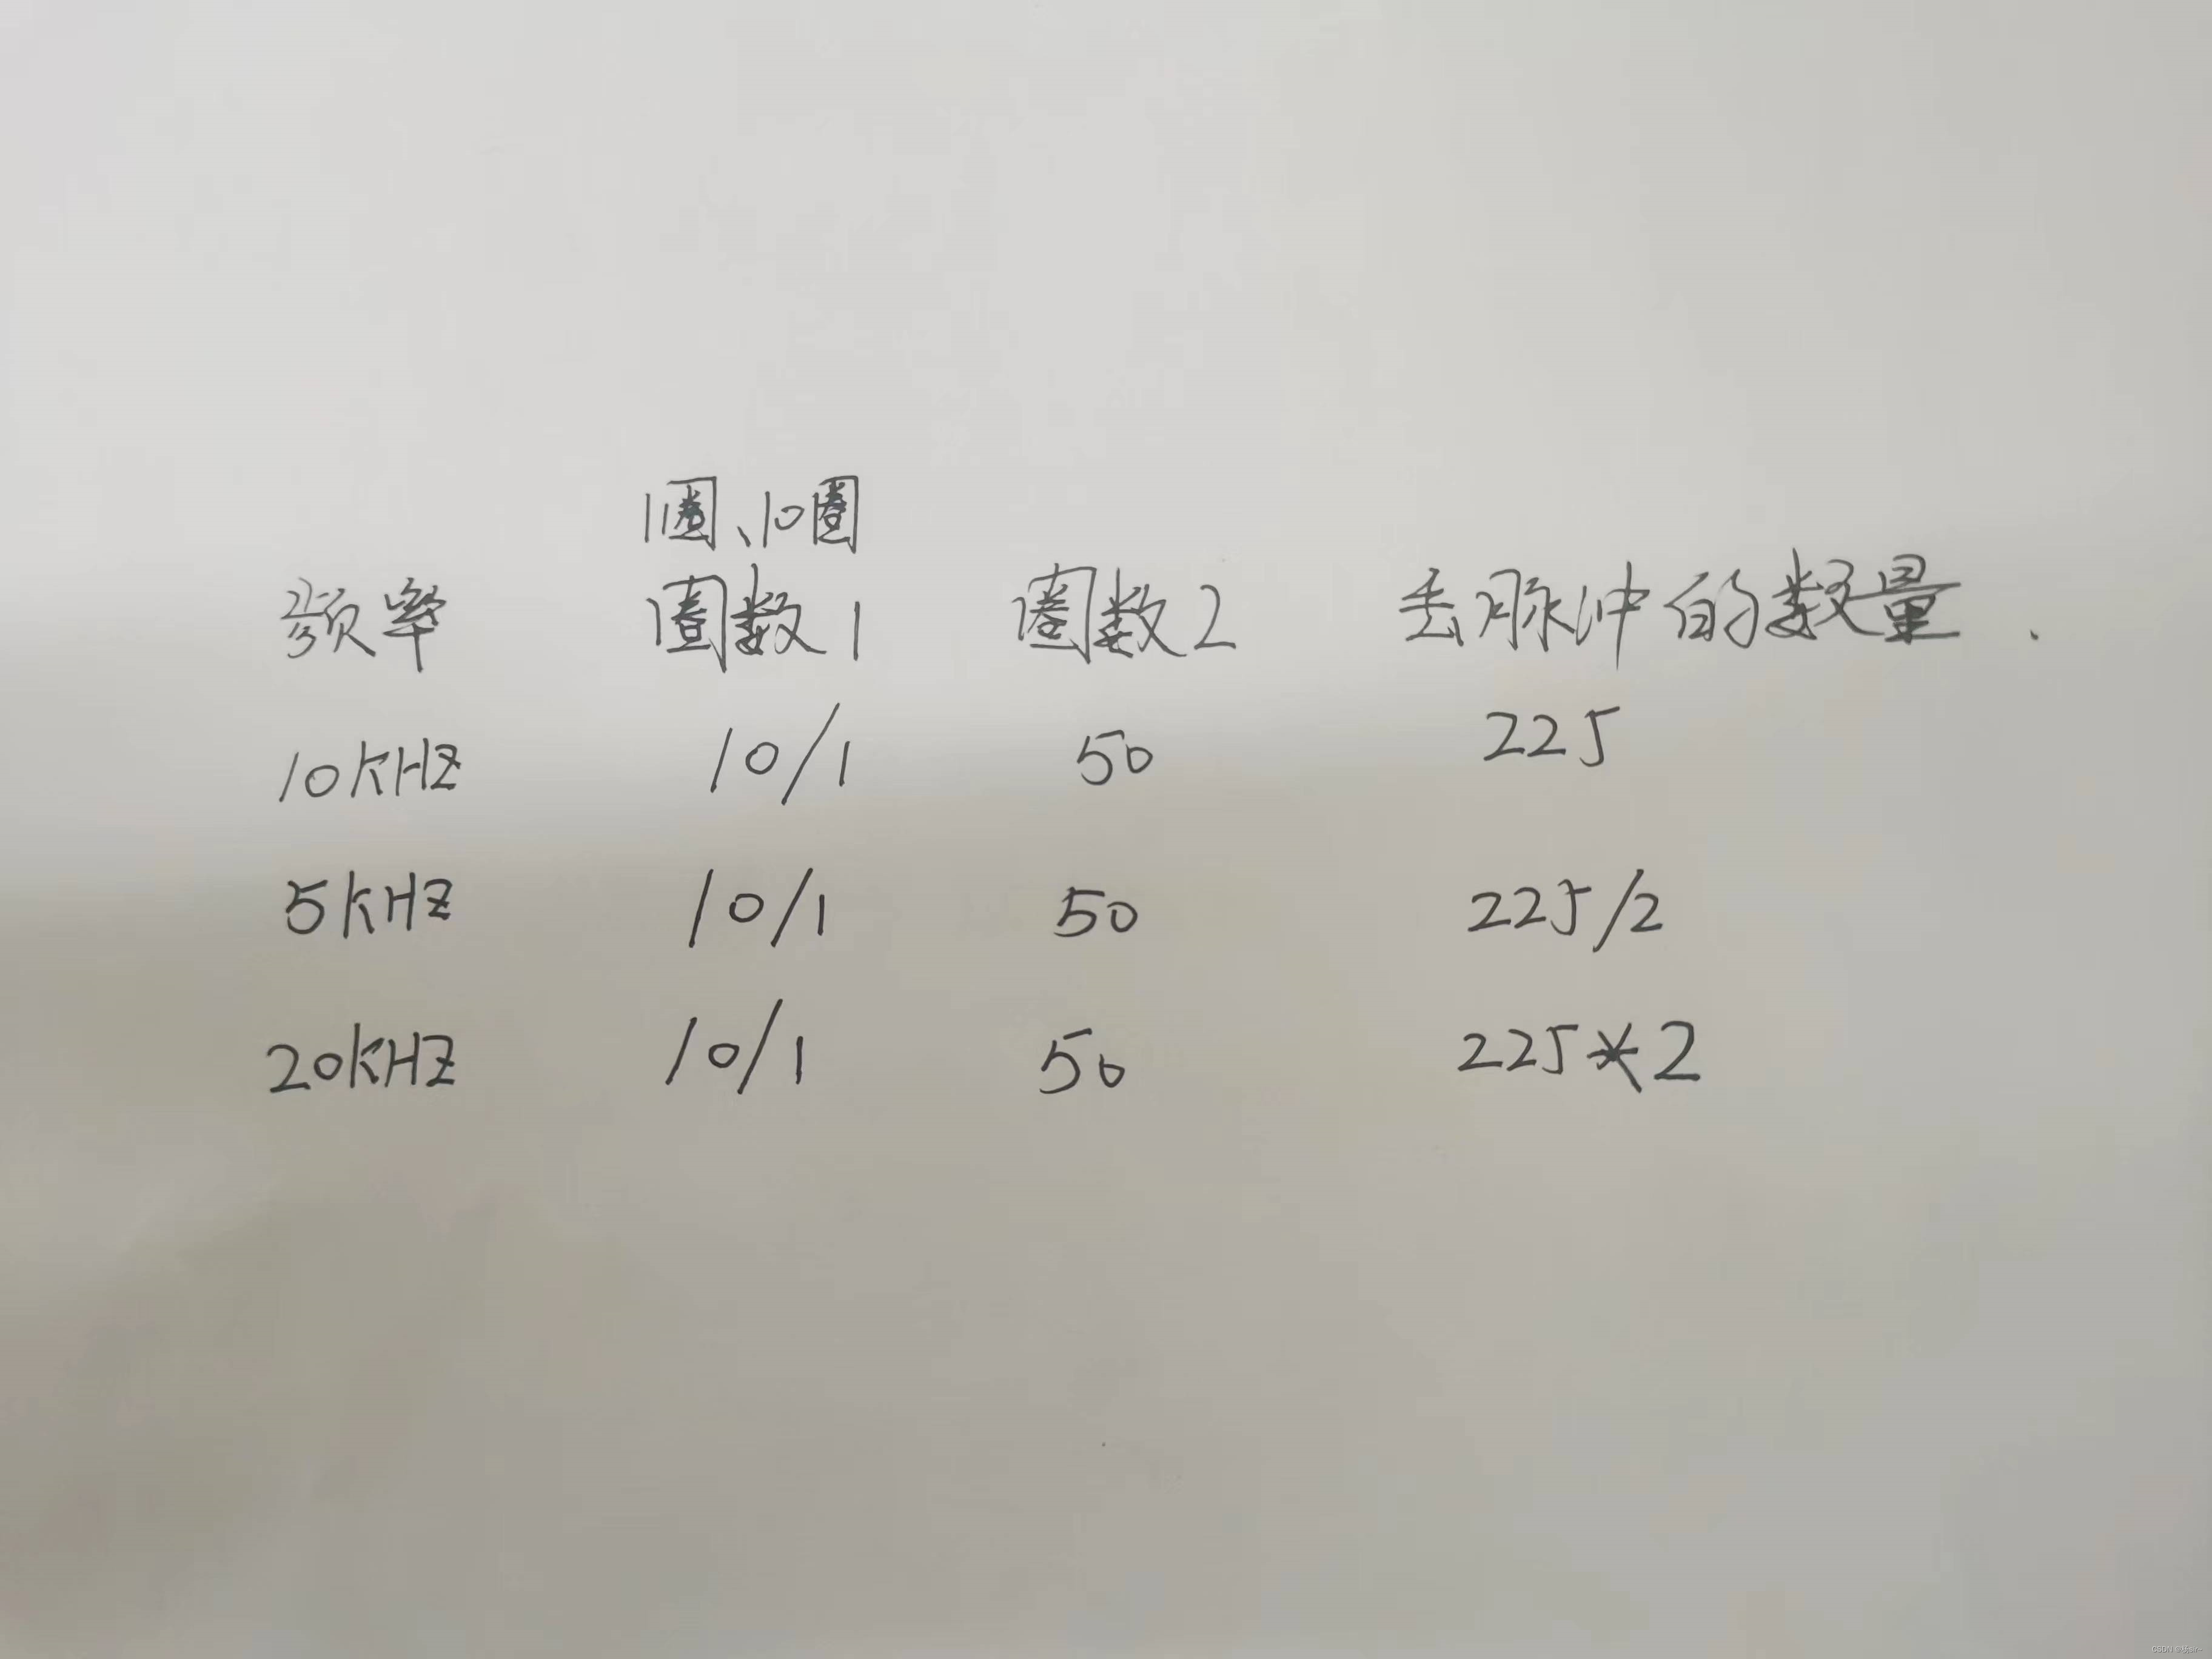 1圈、10圈
频率 圈数1 圈数2 丢脉冲的数量.
10KHZ 10/1 50 225
5KHZ 10/1 50 225/2
20KHZ 10/1 50 225*2
CSDN